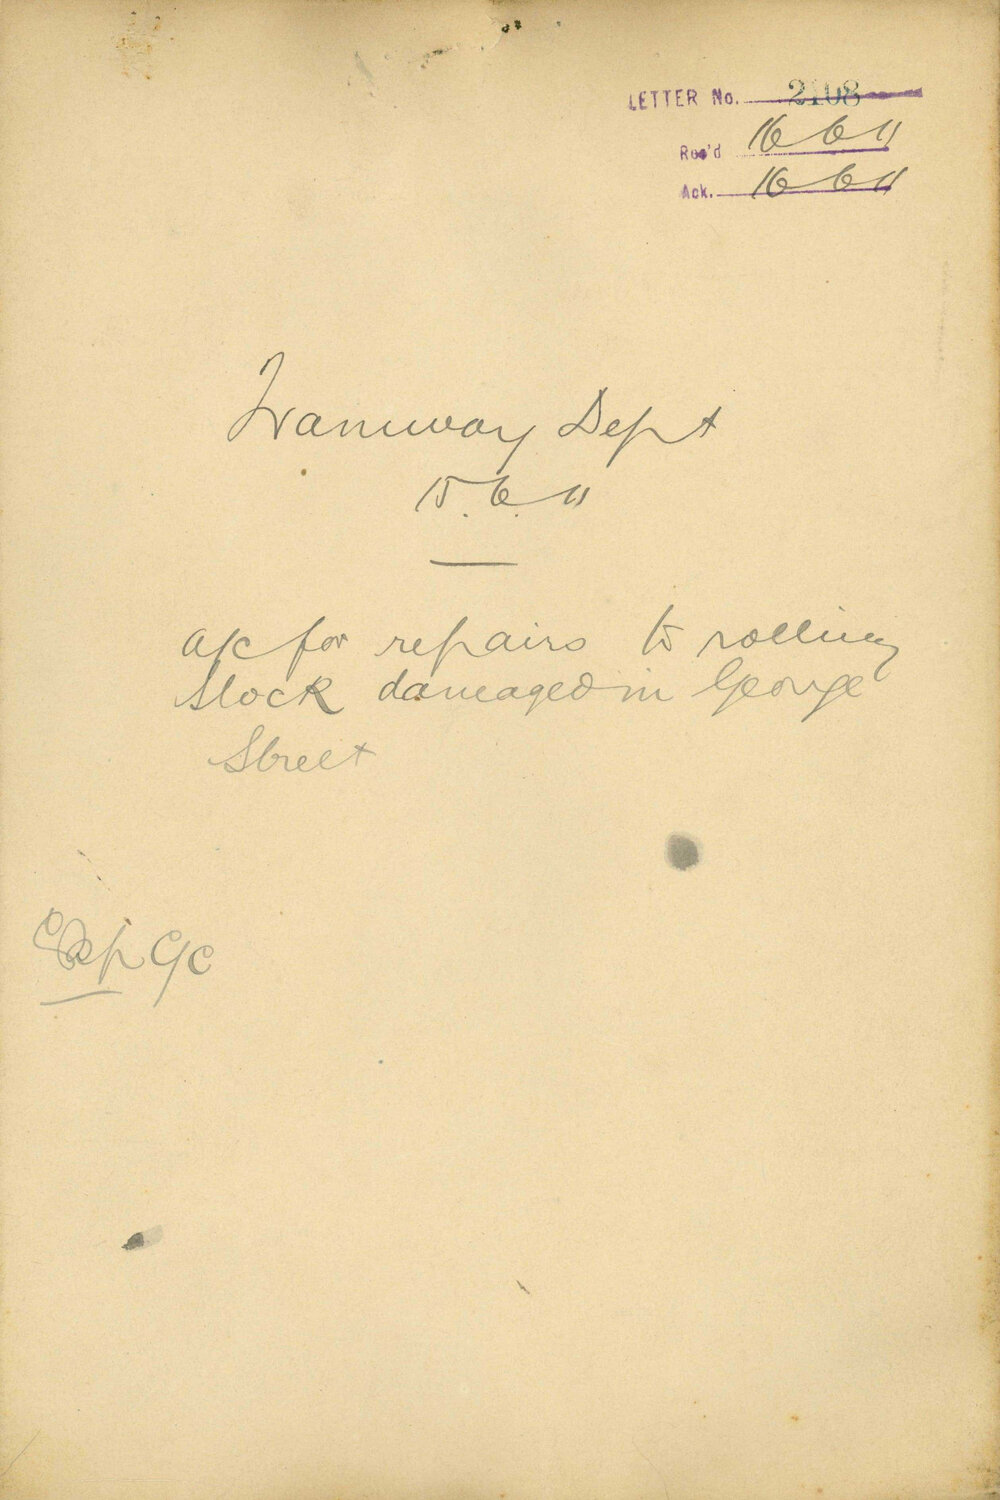 LETTER No. 2108
Rec'd 16 6 11
Ack. 16 6 11
Tramway Dept
15.6.11
a/c for repairs to rolling
stock damaged in George
Street